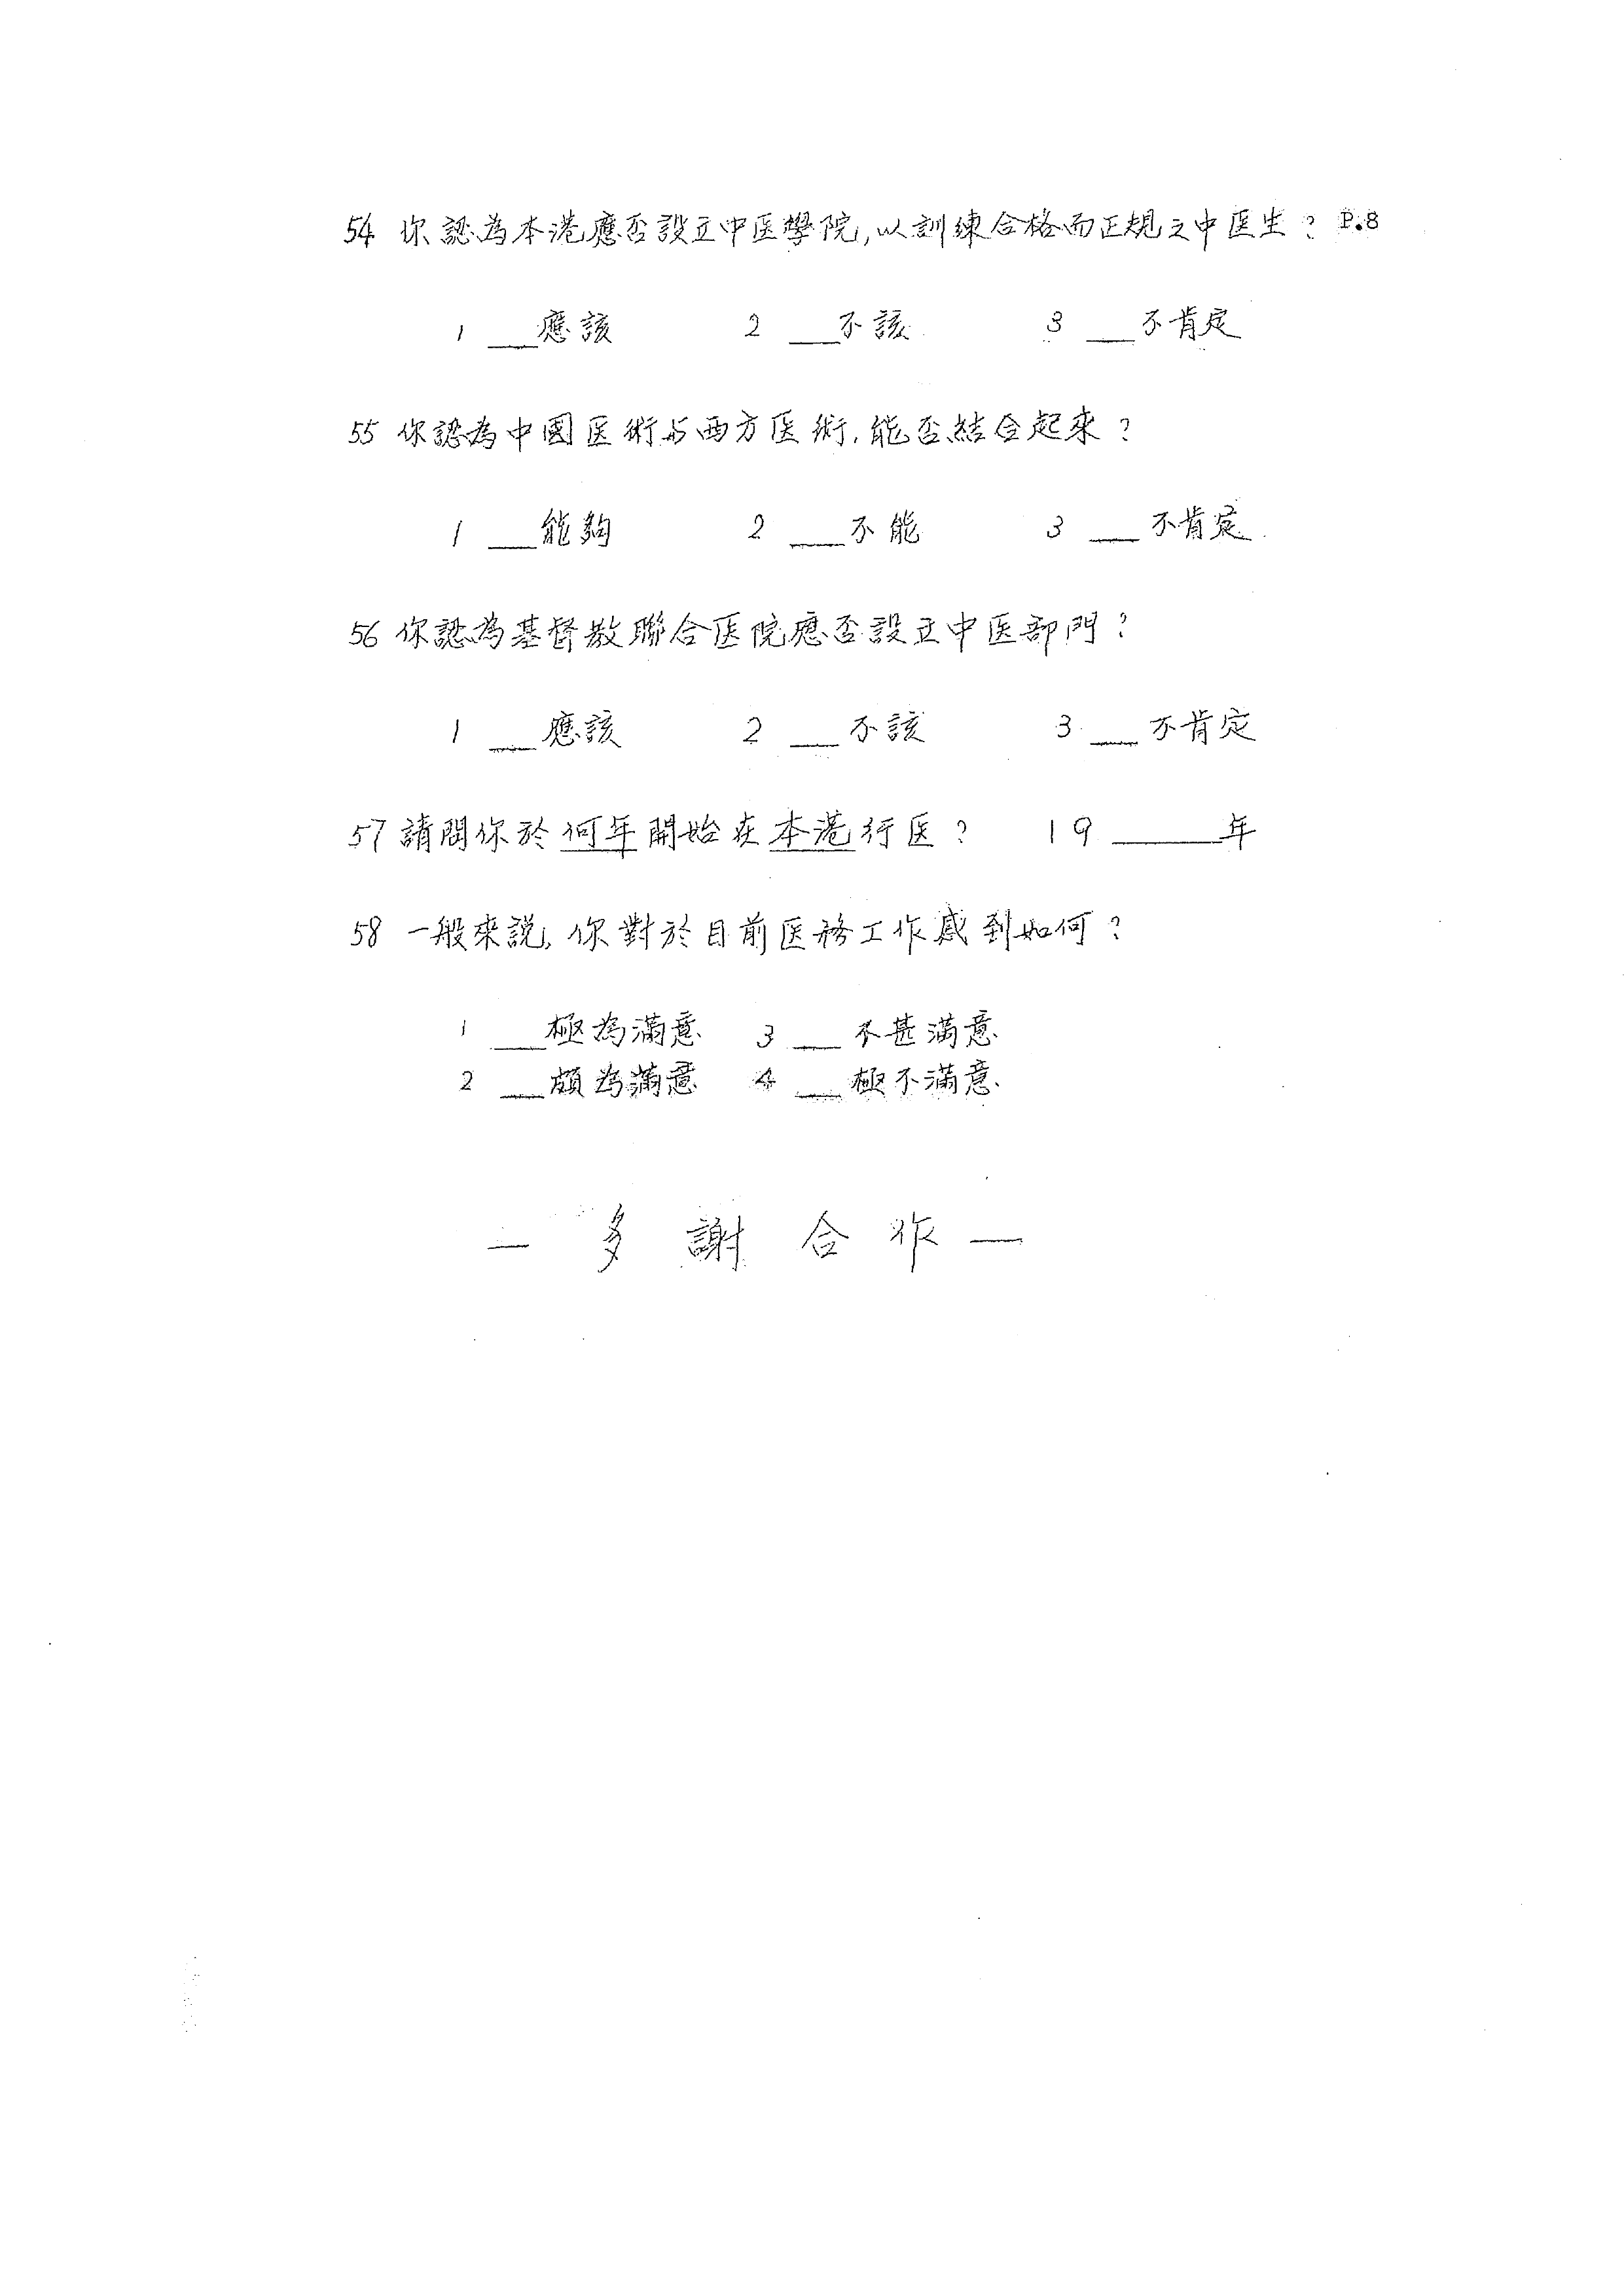 54 你認為本港應否設立中医學院,以訓練合格而正規之中医生? P.8
1 __應該 2 __不該 3 __不肯定
55 你認為中國医術与西方医術,能否結合起來?
1 __能夠 2 __不能 3 __不肯定
56 你認為基督教聯合医院應否設立中医部門?
1 __應該 2 __不該 3 __不肯定
57 請問你於何年開始在本港行医? 19____年
58 一般來説,你對於目前医務工作感到如何?
1 __極為滿意 3 __不甚滿意
2 __頗為滿意 4 __極不滿意
— 多謝合作 —